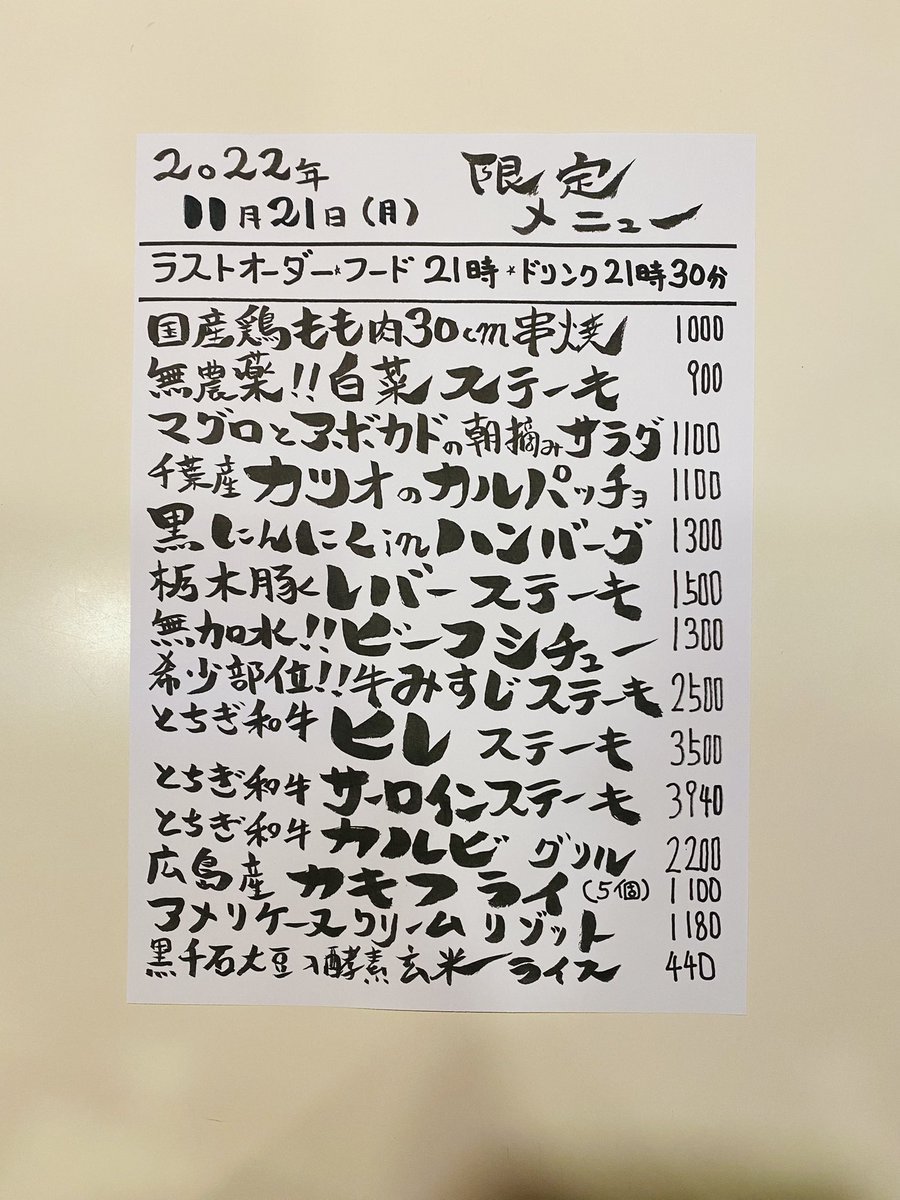 2022年
11月21日(月)
限定
メニュー
ラストオーダー*フード21時*ドリンク21時30分
国産鶏もも肉30cm串焼 1000
無農薬!!白菜ステーキ 900
マグロとアボカドの朝摘みサラダ 1100
千葉産カツオのカルパッチョ 1100
黒にんにくinハンバーグ 1300
栃木豚レバーステーキ 1500
無加水!!ビーフシチュー 1300
希少部位!!牛みすじステーキ 2500
とちぎ和牛ヒレステーキ 3500
とちぎ和牛サーロインステーキ 3940
とちぎ和牛カルビグリル 2200
広島産カキフライ(5個) 1100
アメリケーヌクリームリゾット 1180
黒千石大豆入酵素玄米ライス 440